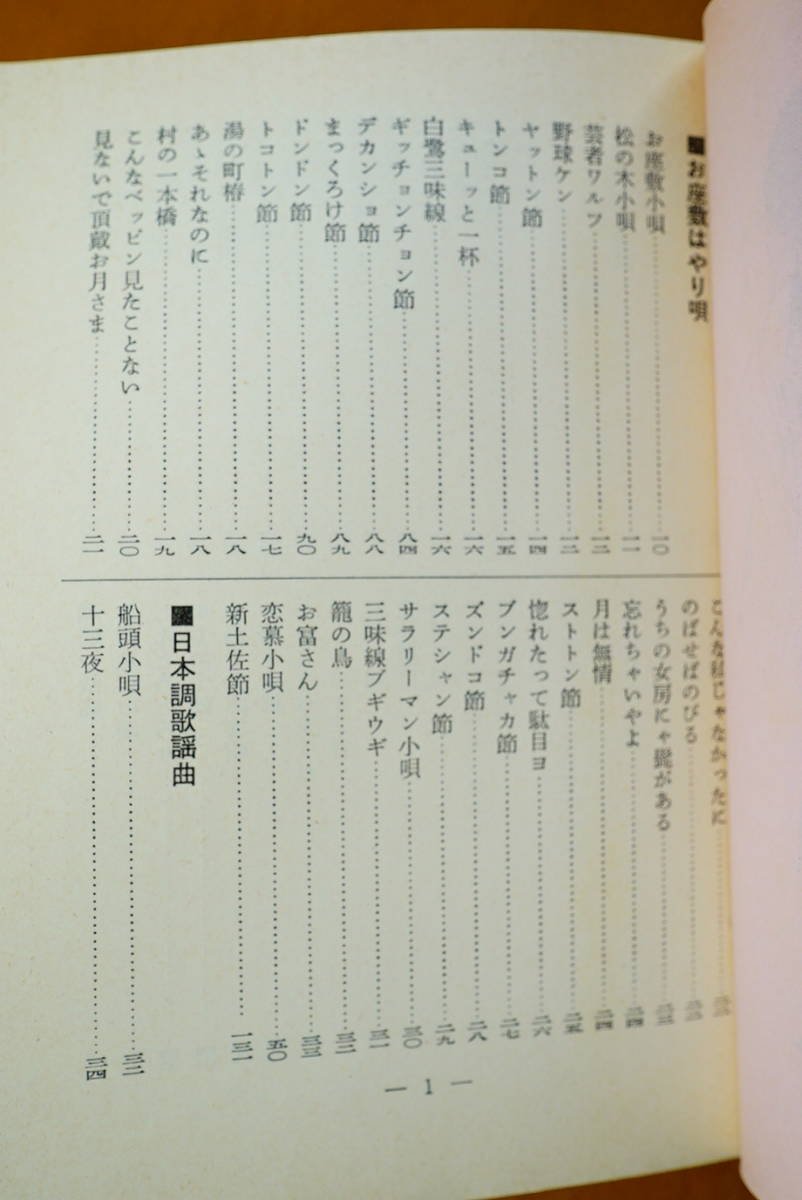 ■お座敷はやり唄
お座敷小唄……一〇
松の木小唄……一一
芸者ワルツ……一二
野球ケン……一三
ヤットン節……一四
トンコ節……一五
キューッと一杯……一六
白鷺三味線……一六
ギッチョンチョン節……八四
デカンショ節……八八
まっくろけ節……八九
ドンドン節……九〇
トコトン節……一七
湯の町椿……一八
あゝそれなのに……一八
村の一本橋……一九
こんなベッピン見たことない……二〇
見ないで頂戴お月さま……二一
こんな私じゃなかったに
のばせばのびる
うちの女房にゃ髭がある
忘れちゃいやよ……二四
月は無情……二四
ストトン節……二五
惚れたって駄目ヨ……二六
ブンガチャカ節……二七
ズンドコ節……二八
ステシャン節……二九
サラリーマン小唄……三〇
三味線ブギウギ……三一
籠の鳥……三二
お富さん……三三
恋慕小唄……五〇
新土佐節……一三一
■日本調歌謡曲
船頭小唄……三二
十三夜……三四
— 1 —